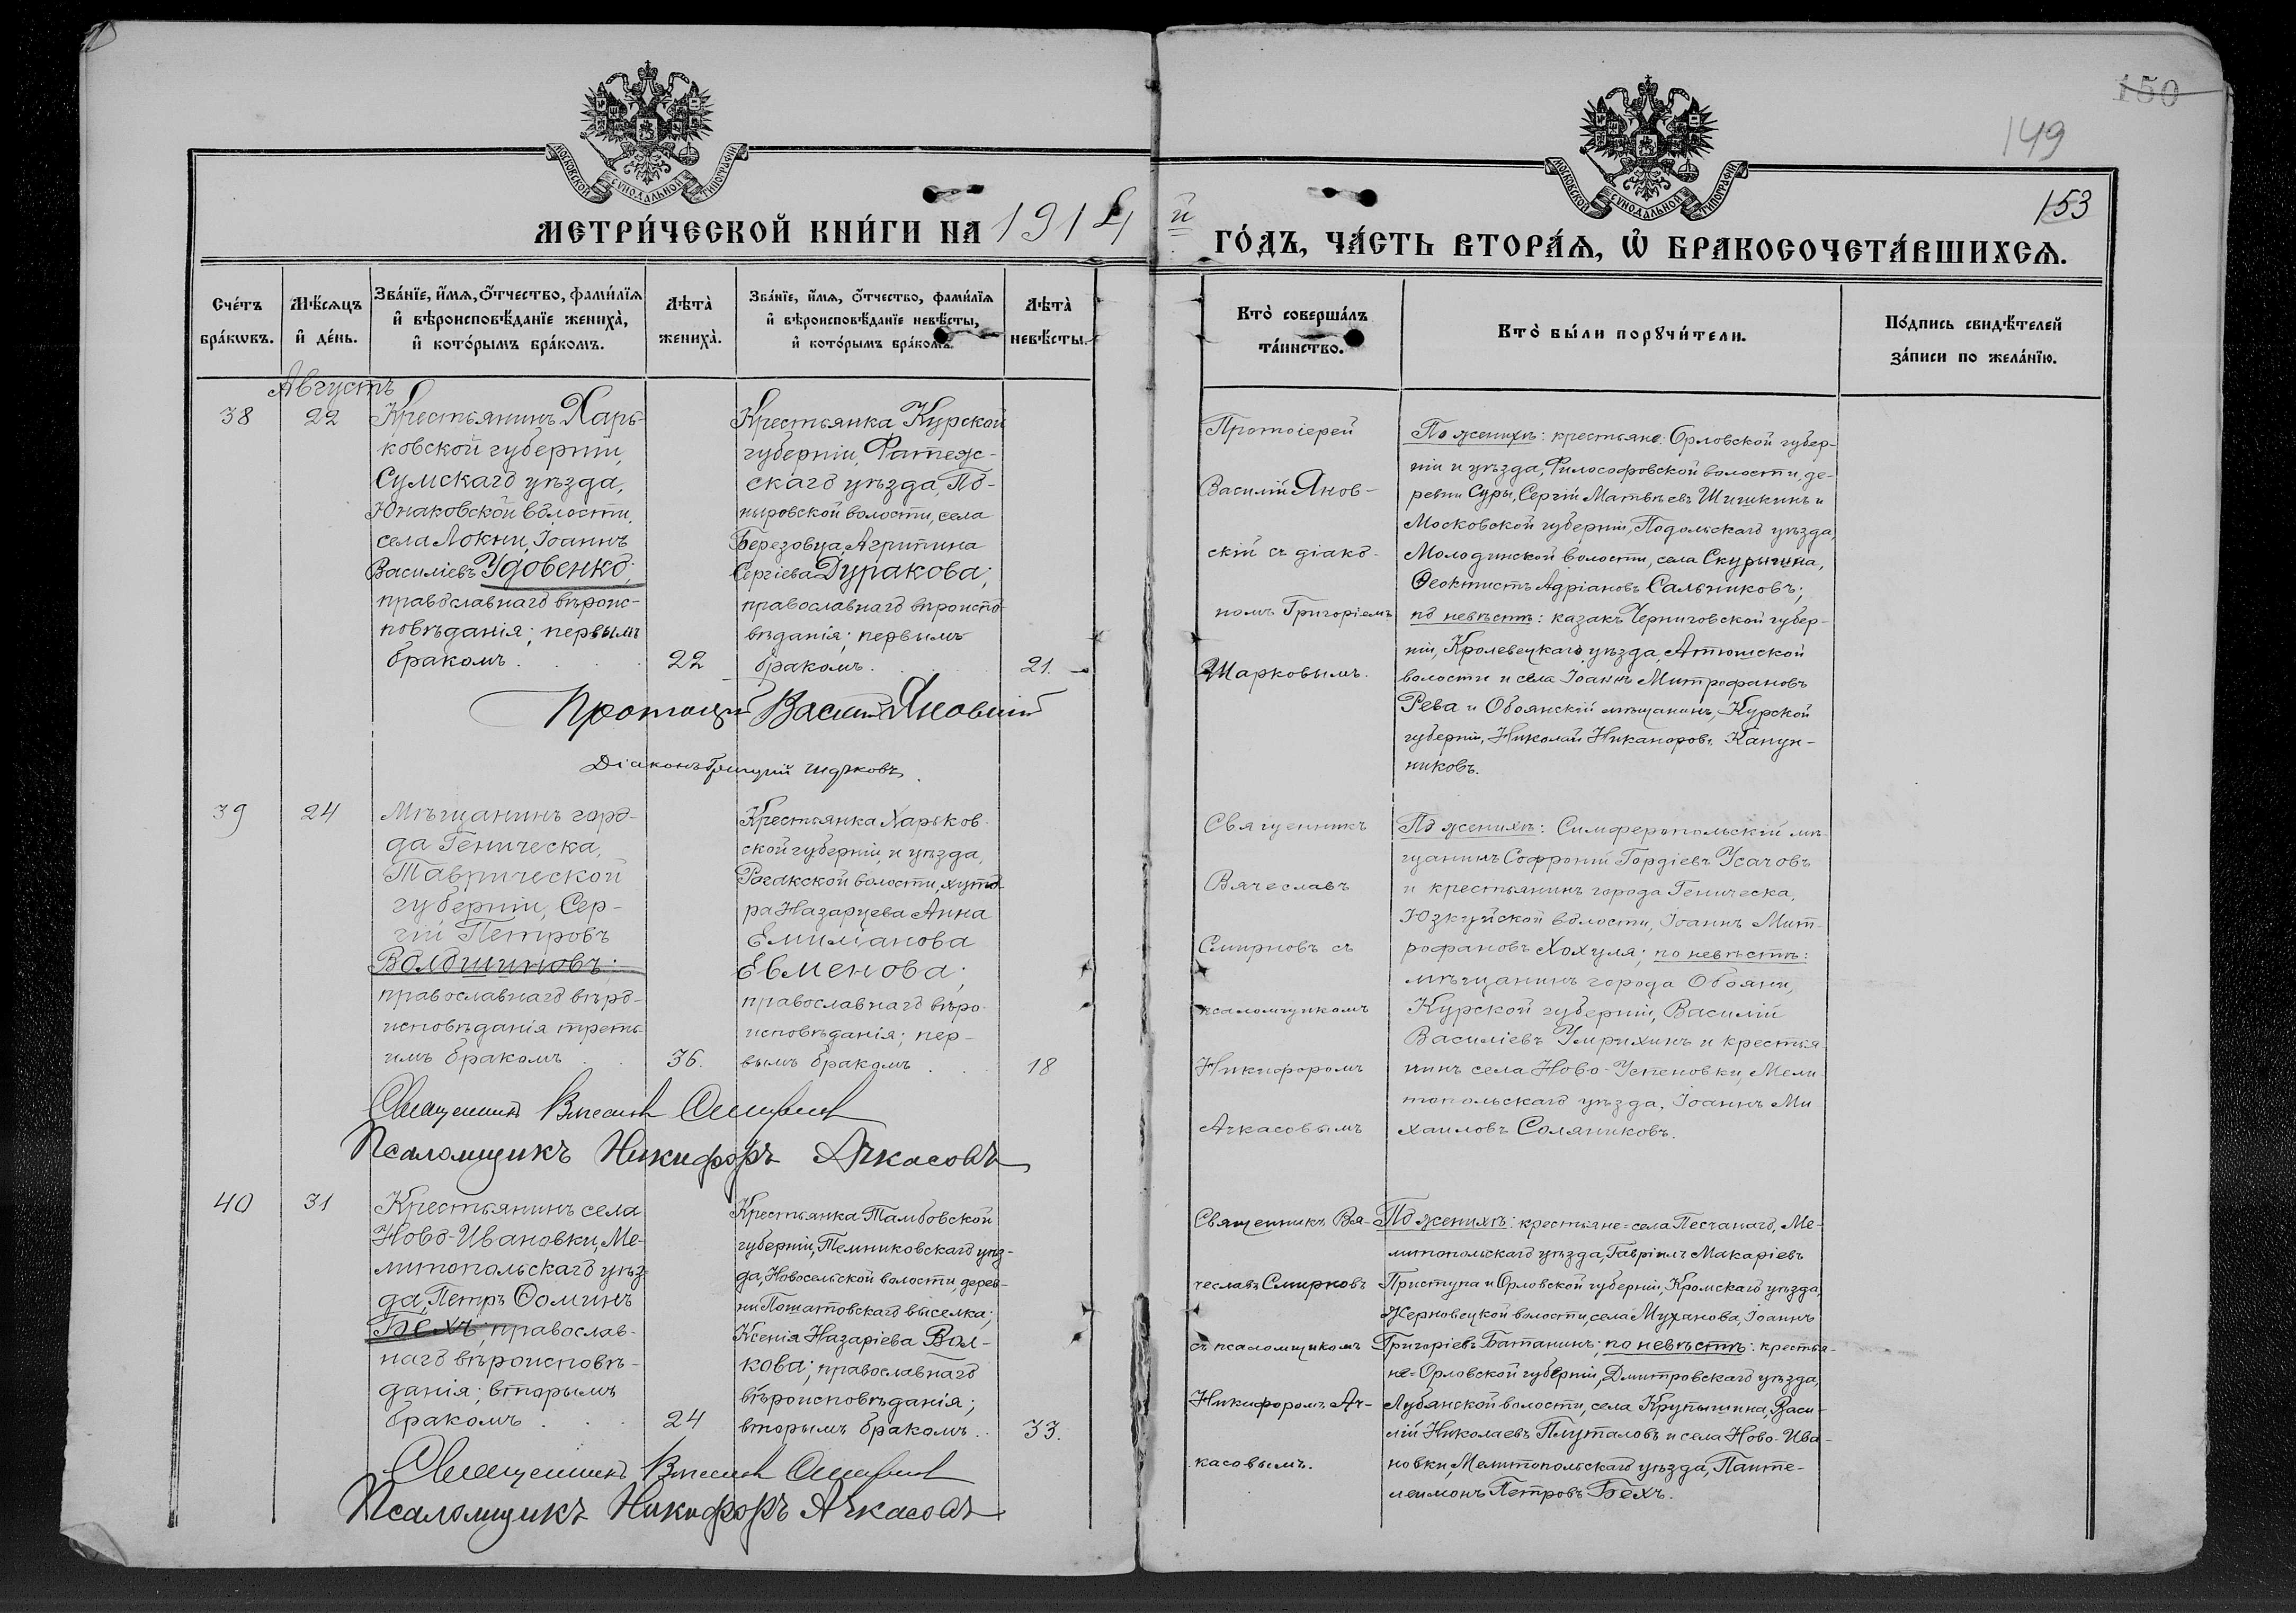 150
149
153
МОСКОВСКОЙ СѴНОДАЛЬНОЙ ТИПОГРАФІИ
МОСКОВСКОЙ СѴНОДАЛЬНОЙ ТИПОГРАФІИ
МЕТРИ́ЧЕСКОЙ КНИ́ГИ НА 1914 й ГО́ДЪ, ЧА́СТЬ ВТОРА́Ѧ, Ѡ҆ БРАКОСОЧЕТА́ВШИХСѦ.
Сче́тъ бра́кѡвъ.
Мѣ́сѧцъ и҆ де́нь.
Зва́нїе, и҆́мѧ, ѻ҆́тчество, фами́лїѧ и҆ вѣроисповѣ́данїе жениха̀, и҆ кото́рымъ бра́комъ.
Лѣта̀ жениха̀.
Зва́нїе, и҆́мѧ, ѻ҆́тчество, фами́лїѧ и҆ вѣроисповѣ́данїе невѣ́сты, и҆ кото́рымъ бра́комъ.
Лѣта̀ невѣ́сты.
Кто̀ соверша́лъ та́инство.
Кто̀ бы́ли порꙋчи́тели.
По́дпись свидѣ́телей за́писи по жела́нїю.
Августъ
38
22
Крестьянинъ Харь-
ковской губерніи,
Сумскаго уѣзда,
Юнаковской волости,
села Локни, Іоаннъ
Василіевъ Удовенко;
православнаго вѣроис-
повѣданія; первымъ
бракомъ
22
Крестьянка Курской
губерніи, Фатеж-
скаго уѣзда, По-
ныровской волости, села
Березовца, Агрипина
Сергіева Дуракова;
православнаго вѣроиспо-
вѣданія; первымъ
бракомъ
21.
Протоіерей
Василій Янов-
скій съ діако-
номъ Григоріемъ
Шарковымъ.
По женихѣ: крестьяне: Орловской губер-
ніи и уѣзда, Философовской волости, де-
ревни Суры, Сергій Матвѣевъ Шишкинъ и
Московской губерніи, Подольскаго уѣзда,
Молодинской волости, села Скурыгина,
Ѳеоктистъ Адріановъ Сальниковъ;
по невѣстѣ: казакъ Черниговской губер-
ніи, Кролевецкаго уѣзда, Атюшской
волости и села Іоаннъ Митрофановъ
Рева и Обоянскій мѣщанинъ, Курской
губерніи, Николай Никаноровъ Канун-
никовъ.
Протоіерей Василій Яновскій
Діаконъ Григорій Шарковъ
39
24
Мѣщанинъ горо-
да Геническа,
Таврической
губерніи, Сер-
гій Петровъ
Волошиновъ;
православнаго вѣро-
исповѣданія треть-
имъ бракомъ
36.
Крестьянка Харьков-
ской губерніи и уѣзда,
волости, хуто-
ра Назарцева Анна
Емиліанова
Евменова;
православнаго вѣро-
исповѣданія; пер-
вымъ бракомъ
18
Священникъ
Вячеславъ
Смирновъ съ
псаломщикомъ
Никифоромъ
Ачкасовымъ
По женихѣ: Симферопольскій мѣ-
щанинъ Софроній Гордіевъ Усачовъ
и крестьянинъ города Геническа,
Юзкуйской волости, Іоаннъ Мит-
рофановъ Хохуля; по невѣстѣ:
мѣщанинъ города Обояни,
Курской губерніи, Василій
Василіевъ Умрихинъ и крестья-
нинъ села Ново-Успеновки, Мели-
топольскаго уѣзда, Іоаннъ Ми
хаиловъ Соляниковъ.
Священникъ Вячеславъ Смирновъ
Псаломщикъ Никифоръ Ачкасовъ
40
31
Крестьянинъ села
Ново-Ивановки, Ме-
литопольскаго уѣз-
да, Петръ Ѳоминъ
Бехъ; православ-
наго вѣроисповѣ-
данія; вторымъ
бракомъ
24
Крестьянка Тамбовской
губерніи, Темниковскаго уѣз-
да, Новосельской волости, дерев-
ни выселка;
Ксенія Назаріева Вол-
кова; православнаго
вѣроисповѣданія;
вторымъ бракомъ
33.
Священникъ Вя-
чеславъ Смирновъ
съ псаломщикомъ
Никифоромъ Ач-
касовымъ.
По женихѣ: крестьяне=села Песчанаго, Ме-
литопольскаго уѣзда, Гавріилъ Макаріевъ
Приступа и Орловской губерніи, Кромскаго уѣзда,
Жерновецкой волости, села Муханова, Іоаннъ
Григоріевъ Батанинъ; по невѣстѣ: крестья-
не=Орловской губерніи, Дмитровскаго уѣзда,
Лубянской волости, села Крупышина, Васи-
лій Николаевъ Плуталовъ и села Ново-Ива-
новки, Мелитопольскаго уѣзда, Панте-
леимонъ Петровъ Бехъ.
Священникъ Вячеславъ Смирновъ
Псаломщикъ Никифоръ Ачкасовъ